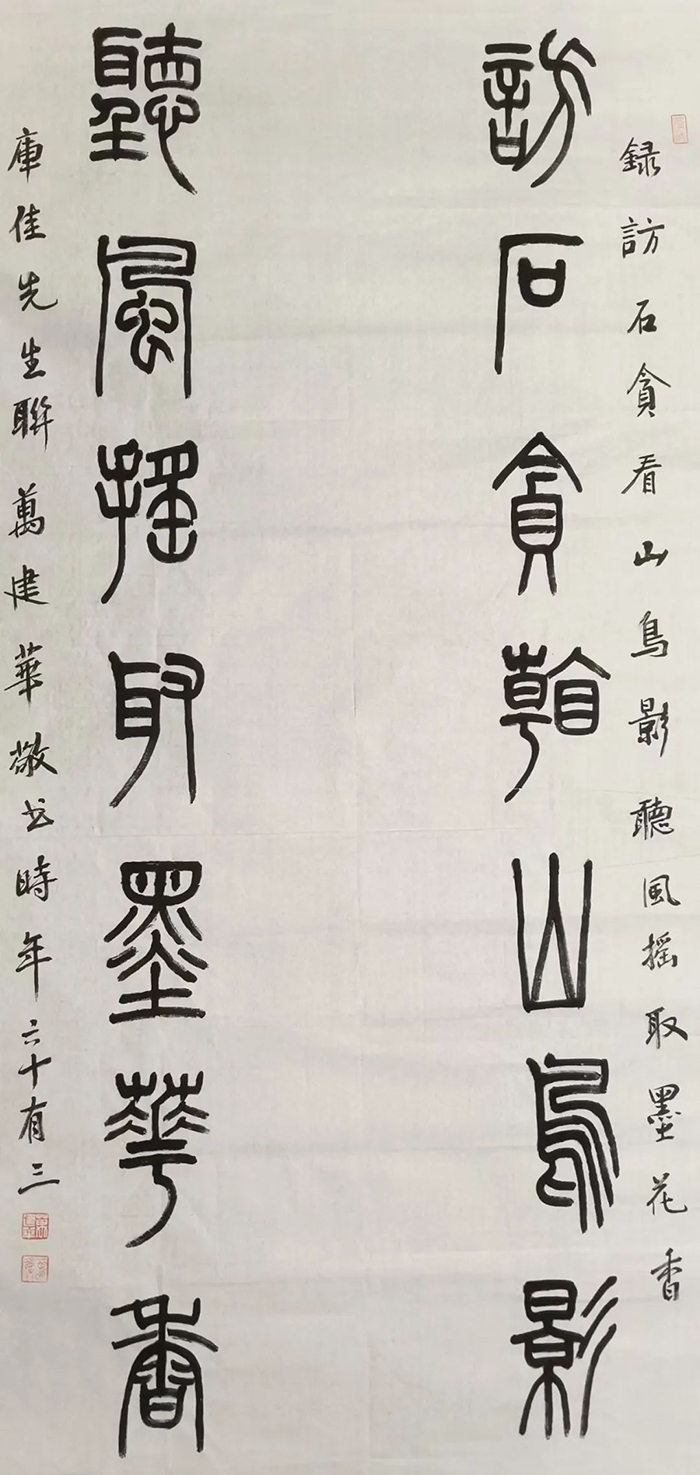 録訪石貪看山鳥影聽風摇取墨花香
訪石貪看山鳥影
聽風摇取墨華香
庫佳先生聯萬建華敬书時年六十有三